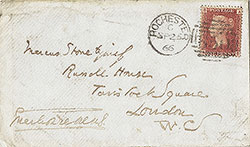 ROCHESTER
C
SP 25
66
Marcus Stone Esquire
Russell House
Tavistock Square
London
W.C.